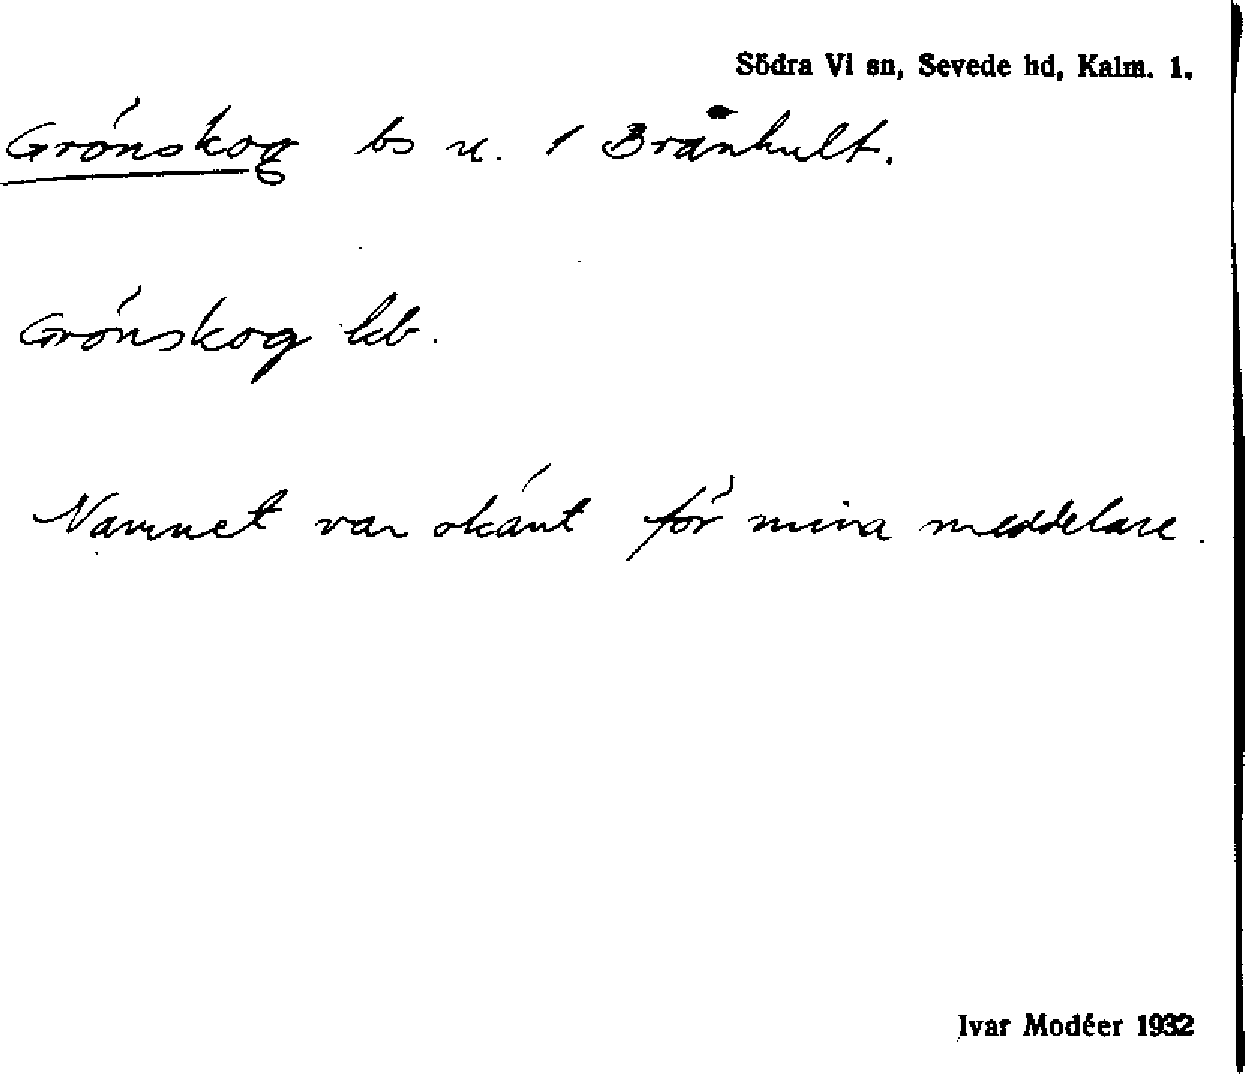 Södra Vi sn, Sevede hd, Kalm. l.
Grönskog bs u. / Brånhult.
Grönskog kb.
Namnet var okänt för mina meddelare.
Ivar Modéer 1932